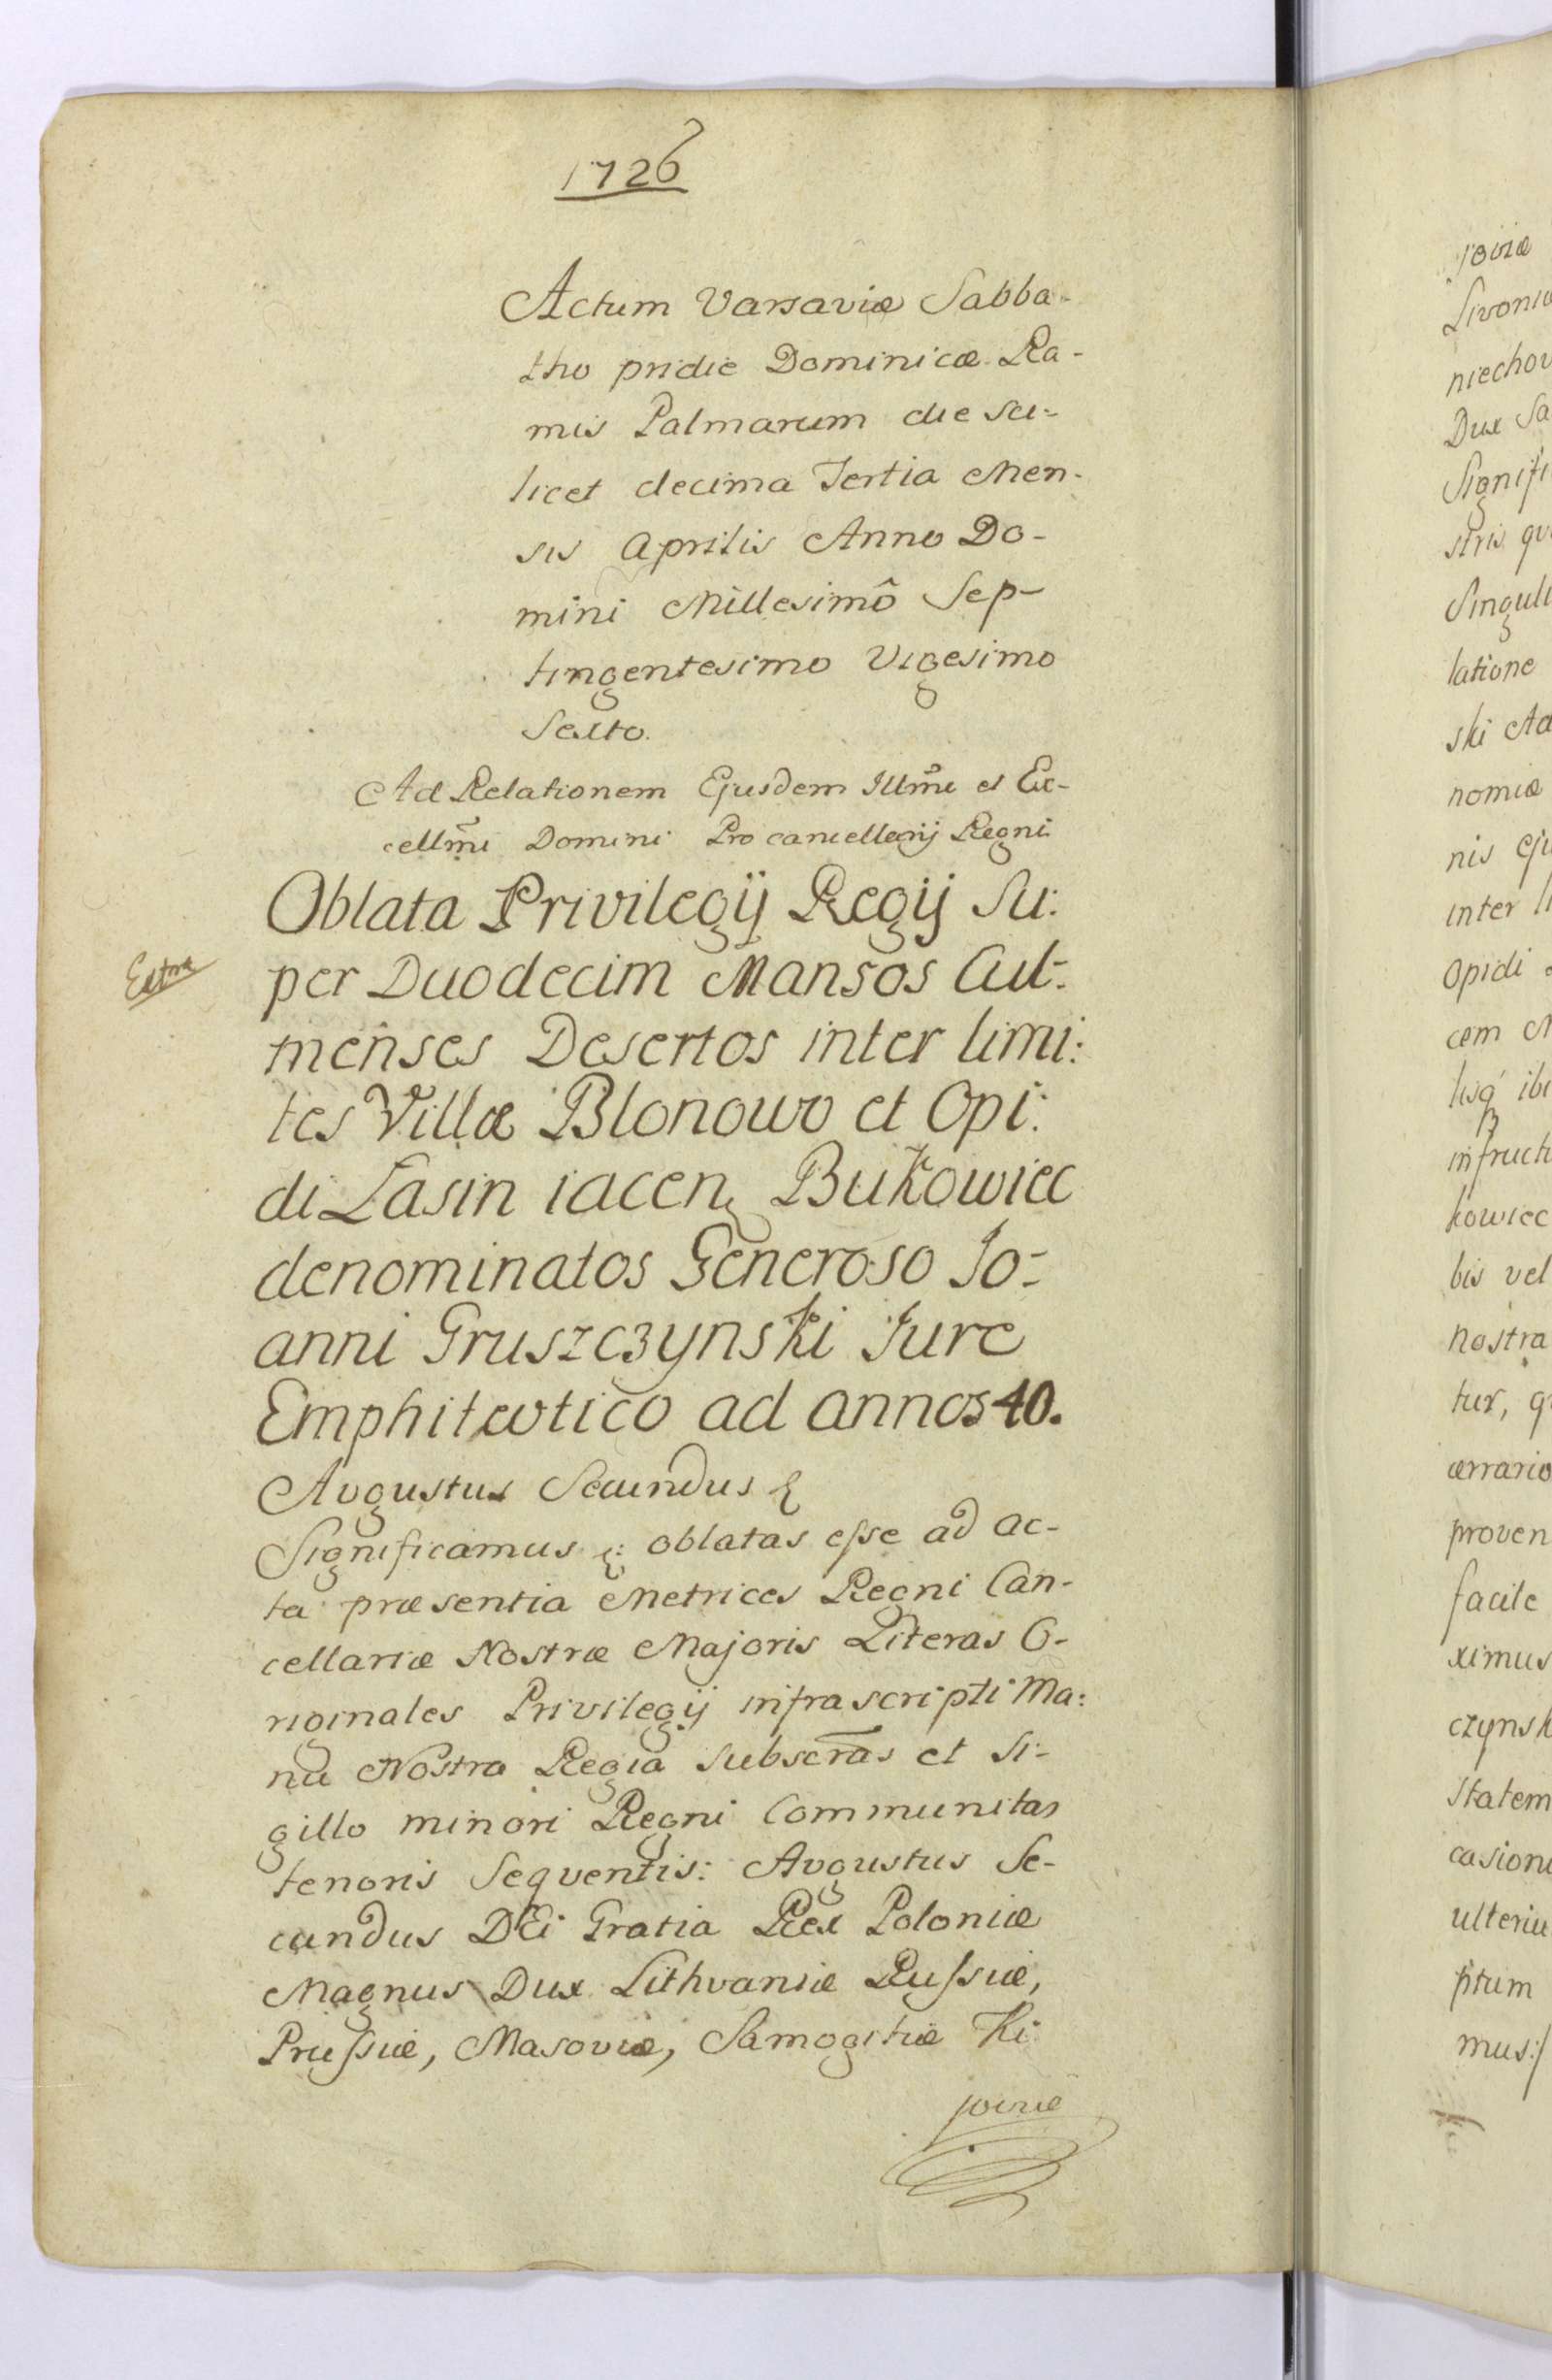 1726
Actum Varsaviæ Sabba-
tho pridie Dominicæ Ra-
mis Palmarum die sci-
licet decima Tertia Men-
sis Aprilis Anno Do-
mini Millesimô Sep-
tingentesimo Vigesimo
Sexto.
Ad Relationem Ejusdem Illm̃i et Ex-
cellm̃i Domini Procancellarij Regni
Oblata Privilegij Regij Su:
Extra
per Duodecim Mansos Cul-
menses Desertos inter limi:
tes Villæ Blonowo et Opi:
di Lasin iacen Bukowiec
denominatos Generoso Jo-
anni Gruszczynski Jure
Emphitæotico ad annos 40.
Augustus Secundus &
Significamus &: oblatas esse ad ac-
ta præsentia Metrices Regni Can-
cellariæ Nostræ Majoris Literas O-
riginales Privilegij infrascripti Ma:
nu Nostra Regia subscr̃as et Si-
gillo minori Regni Communitas
tenoris Seqventis: Augustus Se-
cundus DEi Gratia Rex Poloniæ
Magnus Dux Lithvaniæ Russiæ,
Prussiæ, Masoviæ, Samogitiæ Ki
joviæ
joviæ
Livoniæ
niechov
Dux Sa
Signifi
stris qu
Singuli
latione
ski Ad
nomiæ
nis Eju
inter li
Opidi
cem M
lisq ibi
infructu
kowiec
bis vel
nostra
tur, q
ærrario
proven
facile
ximus
czynsk
statem
casion
ulteriu
ptum
mus:/